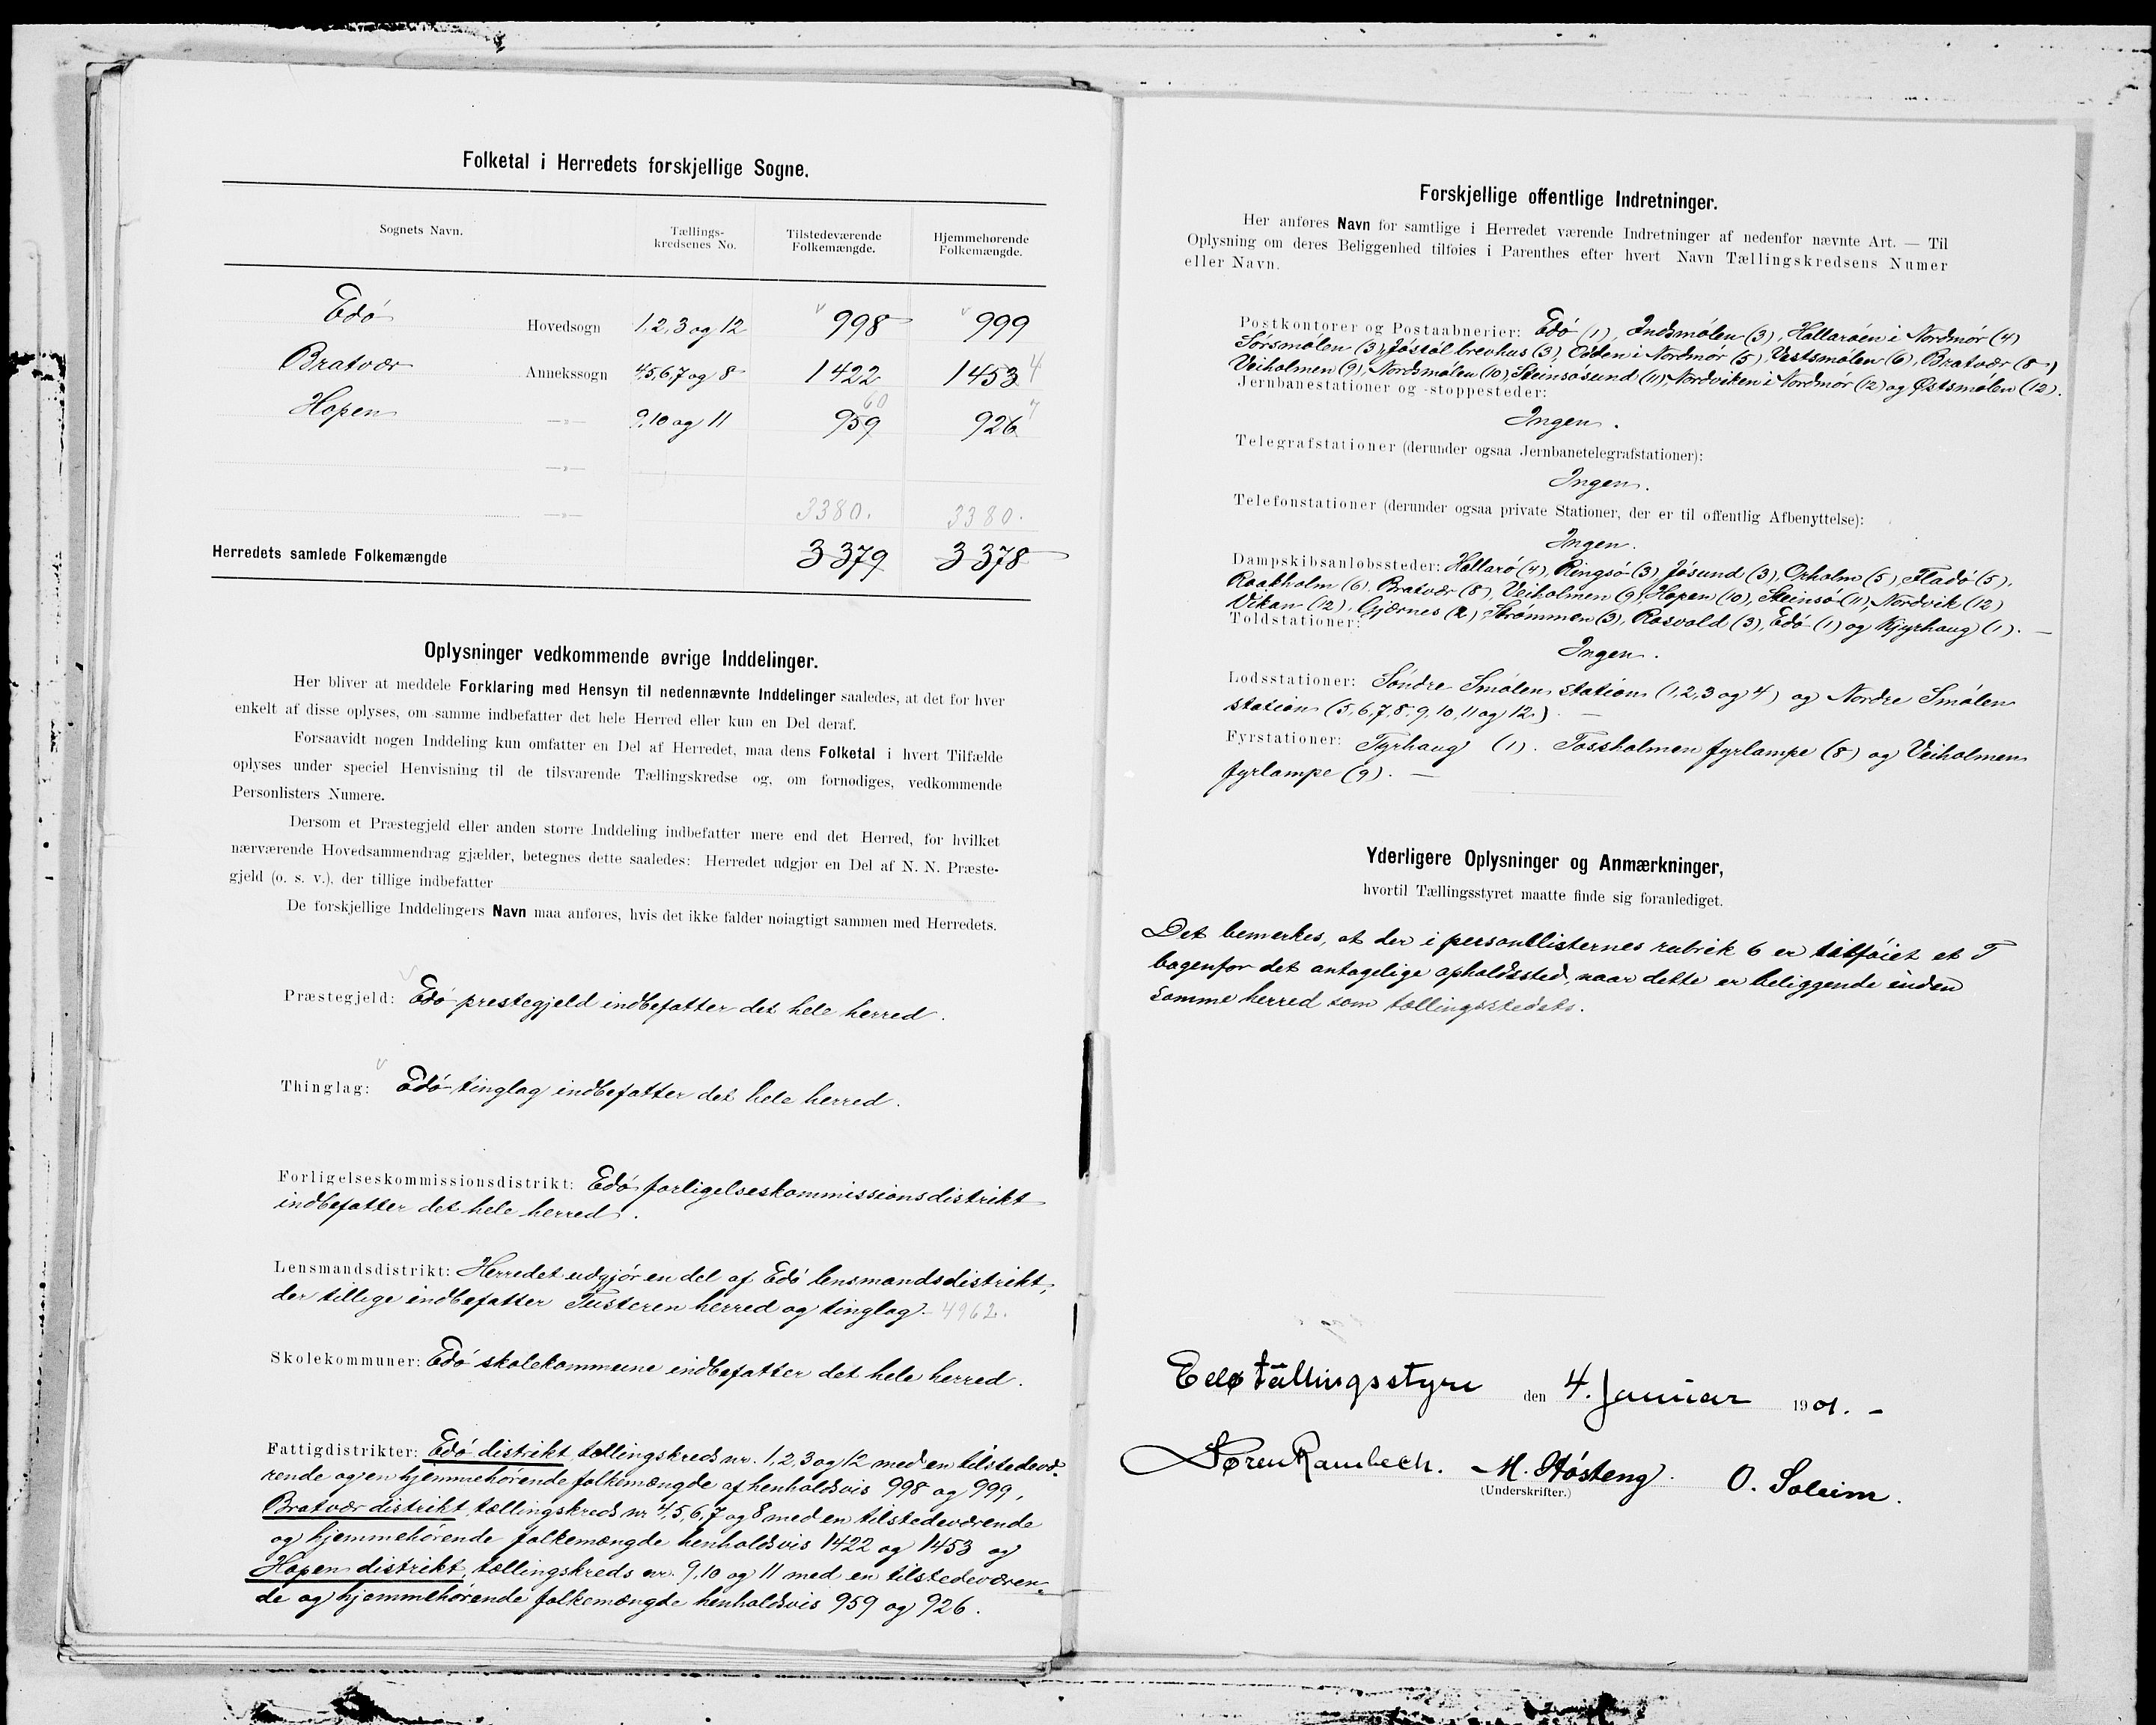 Folketal i Herredets forskjellige Sogne.
Sognets Navn. Tællings-kredsenes No. Tilstedeværende Folkemængde. Hjemmehørende Folkemængde.
Edø Hovedsogn 1, 2, 3 og 12 998 999
Bratvær Annekssogn 4, 5, 6, 7 og 8 1422 1453 4
60 7
Hopen —„— 9, 10 og 11 959 926
—„—
—„— 3380. 3380.
Herredets samlede Folkemængde 3379 3378
Oplysninger vedkommende øvrige Inddelinger.
Her bliver at meddele Forklaring med Hensyn til nedennævnte Inddelinger saaledes, at det for hver
enkelt af disse oplyses, om samme indbefatter det hele Herred eller kun en Del deraf.
Forsaavidt nogen Inddeling kun omfatter en Del af Herredet, maa dens Folketal i hvert Tilfælde
oplyses under speciel Henvisning til de tilsvarende Tællingskredse og, om fornødiges, vedkommende
Personlisters Numere.
Dersom et Præstegjeld eller anden større Inddeling indbefatter mere end det Herred, for hvilket
nærværende Hovedsammendrag gjælder, betegnes dette saaledes: Herredet udgjør en Del af N. N. Præste-
gjeld (o. s. v.), der tillige indbefatter
De forskjellige Inddelingers Navn maa anføres, hvis det ikke falder nøiagtigt sammen med Herredets.
Præstegjeld: Edø prestegjeld indbefatter det hele herred.
Thinglag: Edø tinglag indbefatter det hele herred.
Forligelseskommissionsdistrikt: Edø forligelseskommissionsdistrikt
indbefatter det hele herred.
Lensmandsdistrikt: Herredet udgjør en del af Edø lensmandsdistrikt,
der tillige indbefatter Tusteren herred og tinglag. 4962.
Skolekommuner: Edø skolekommune indbefatter det hele herred.
Fattigdistrikter: Edø distrikt, tællingskreds nr. 1, 2, 3 og 12 med en tilstedevæ-
rende og en hjemmehørende folkemængde af henholdsvis 998 og 999,
Bratvær distrikt, tællingskreds nr 4, 5, 6, 7 og 8 med en tilstedeværende
og hjemmehørende folkemængde henholdsvis 1422 og 1453 og
Hopen distrikt, tællingskreds nr. 9, 10 og 11 med en tilstedeværen-
de og hjemmehørende folkemængde henholdsvis 959 og 926.
Forskjellige offentlige Indretninger.
Her anføres Navn for samtlige i Herredet værende Indretninger af nedenfor nævnte Art. — Til
Oplysning om deres Beliggenhed tilføies i Parenthes efter hvert Navn Tællingskredsens Numer
eller Navn.
Postkontorer og Postaabnerier: Edø (1), Indsmølen (3), Hallarøen i Nordmør (4)
Sørsmølen (3), Jøstøl brevhus (3), Odden i Nordmør (5), Vestsmølen (6), Bratvær (8)
Veiholmen (9), Nordsmølen (10), Steinsøsund (11), Nordviken i Nordmør (12) og Østsmølen (12).
Jernbanestationer og -stoppesteder:
Ingen.
Telegrafstationer (derunder ogsaa Jernbanetelegrafstationer):
Ingen.
Telefonstationer (derunder ogsaa private Stationer, der er til offentlig Afbenyttelse):
Ingen.
Dampskibsanløbssteder: Hallarø (4), Ringsø (3), Jøsund (3), Orholm (5), Fladø (5),
Raakholm (6), Bratvær (8), Veiholmen (9), Hopen (10), Steinsø (11), Nordvik (12)
Vikan (12), Gjærnes (2), Strømmen (3), Rosvold (3), Edø (1) og Kjyrhaug (1). —
Toldstationer:
Ingen.
Lodsstationer: Søndre Smølen station (1, 2, 3 og 4) og Nordre Smølen
station (5, 6, 7, 8, 9, 10, 11 og 12). —
Fyrstationer: Tyrhaug (1). Fossholmen fyrlampe (8) og Veiholmen
fyrlampe (9). —
Yderligere Oplysninger og Anmærkninger,
hvortil Tællingsstyret maatte finde sig foranlediget.
Det bemerkes, at der i personllisternes rubrik 6 er tilføiet et T
bagenfor det antagelige opholdssted, naar dette er beliggende inden
samme herred som tællingsstedets.
Edø tællingsstyre den 4. Januar 1901. –
Søren Rambech. M. Høsteng. O. Soleim.
(Underskrifter.)